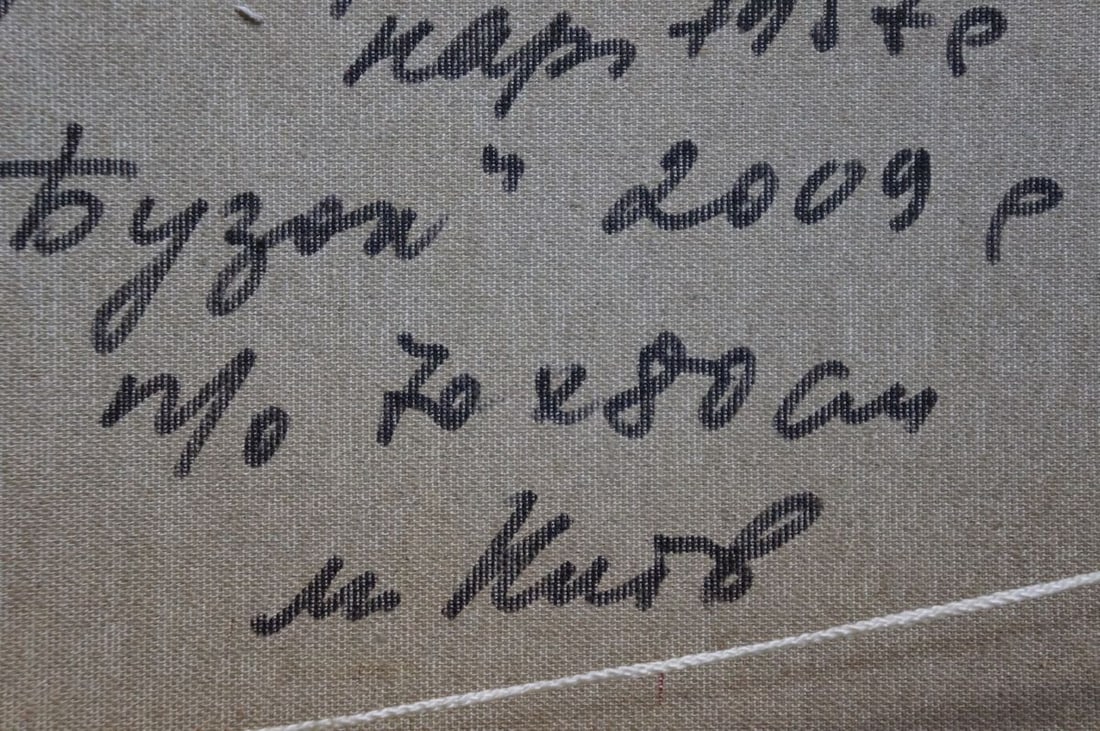 нар 1957 р
Бузок" 2009 р
п/о 70х80см
м Київ